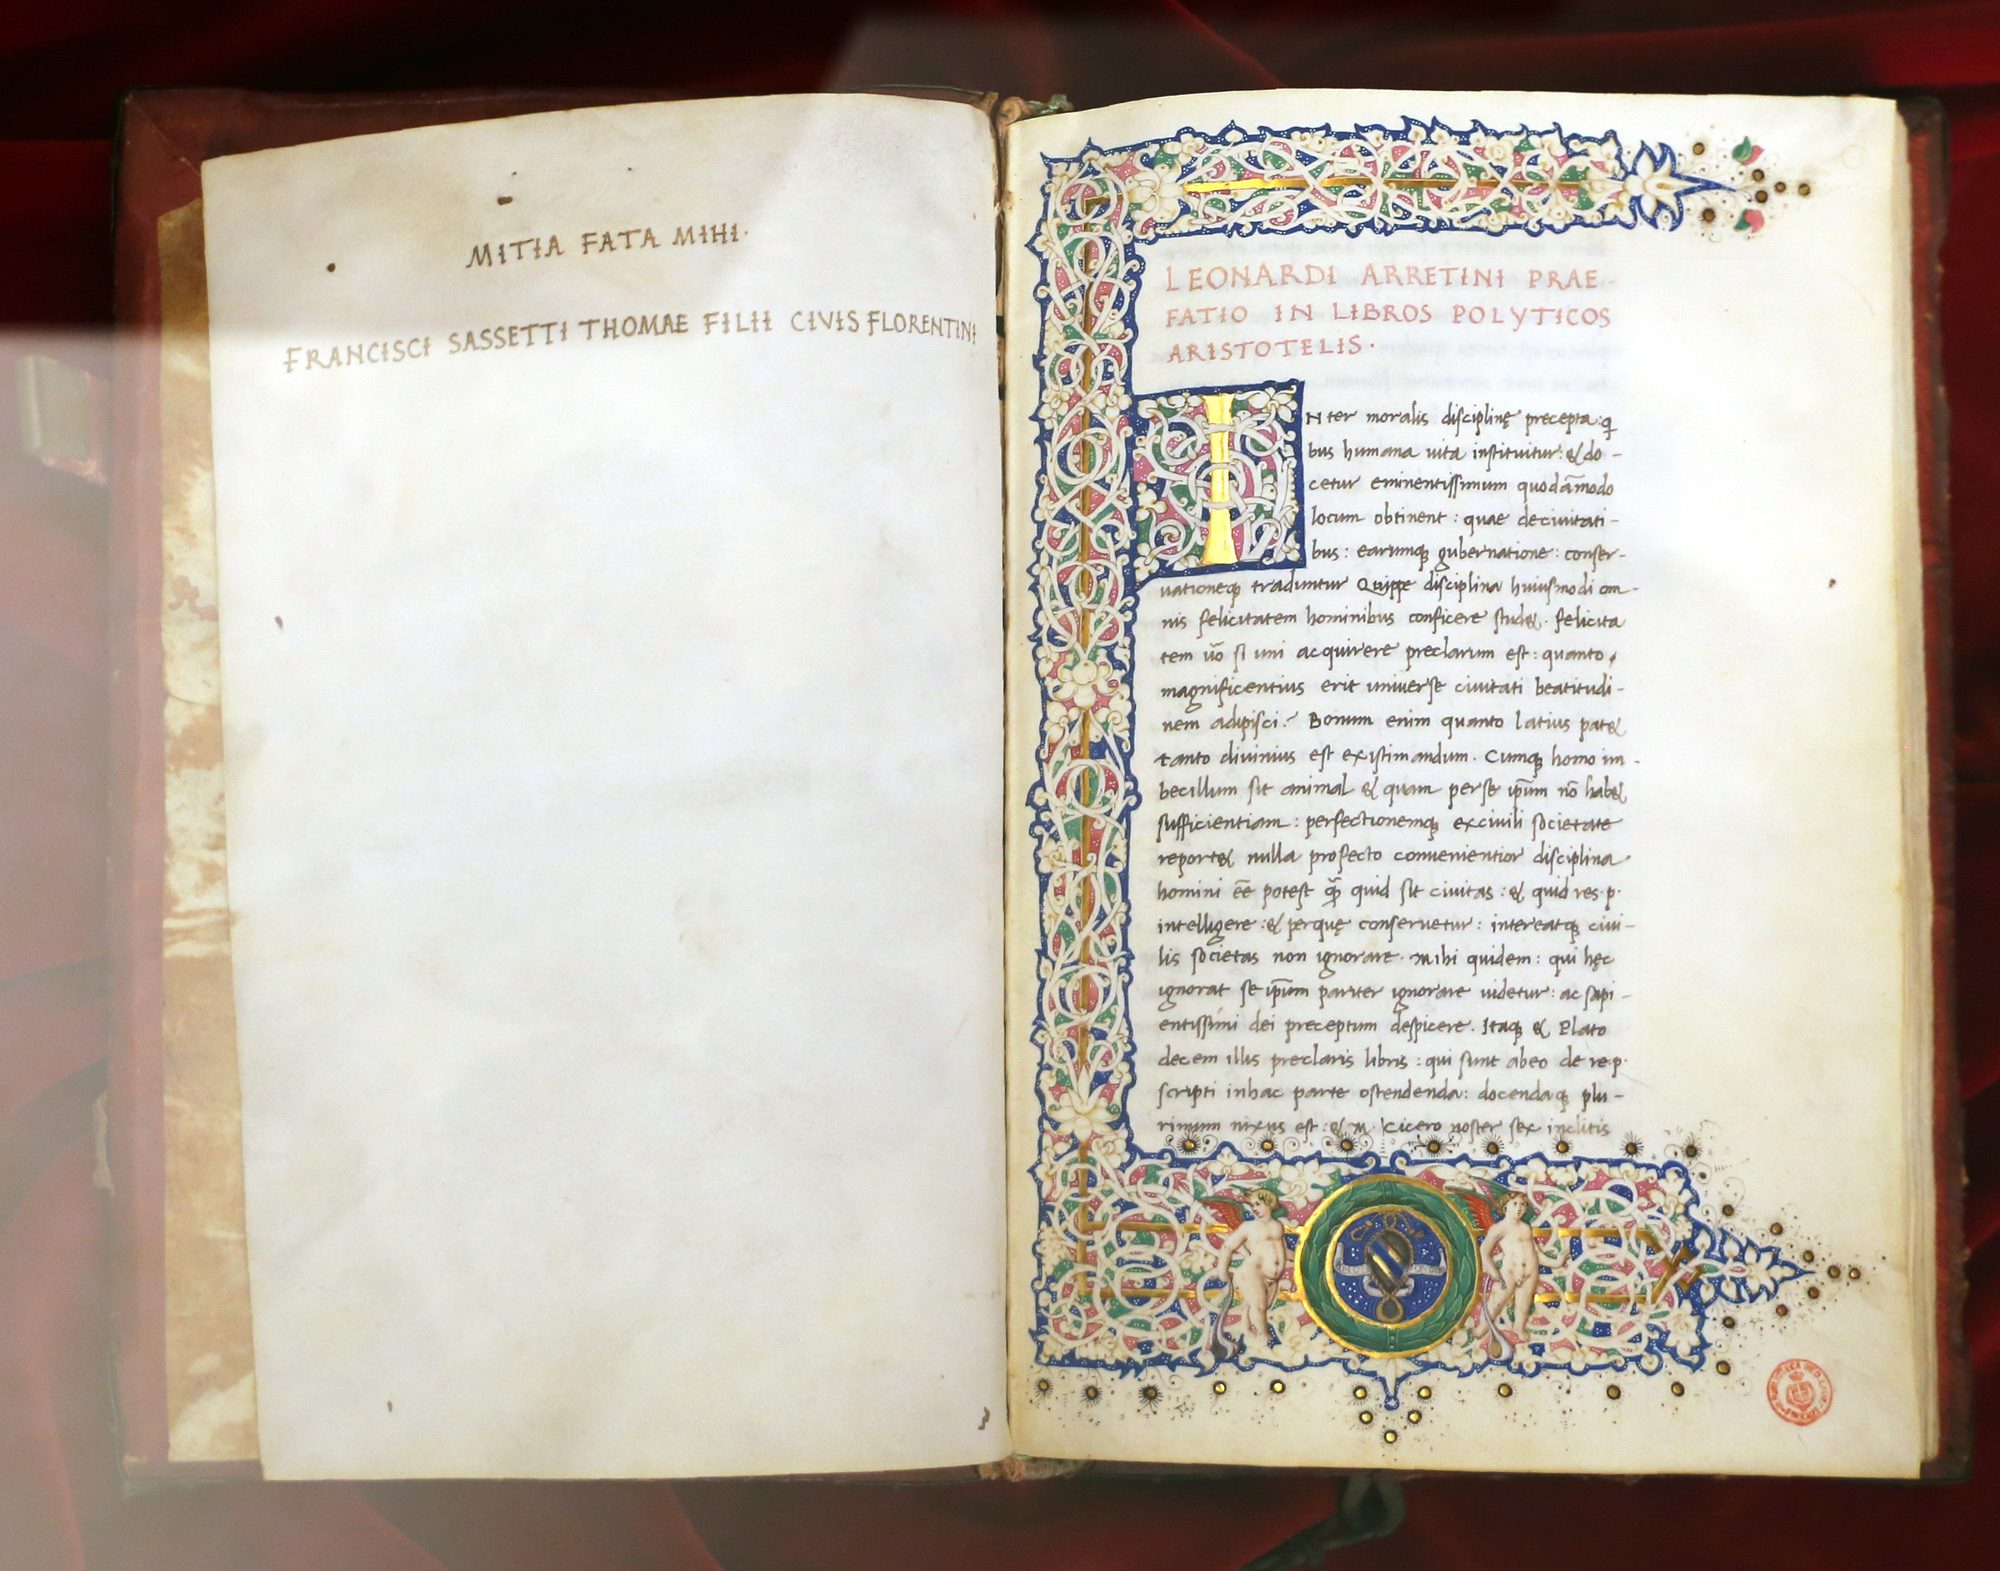 MITIA FATA MIHI·
FRANCISCI SASSETTI THOMAE FILII CIVIS FLORENTINI
LEONARDI ARRETINI PRAE-
FATIO IN LIBROS POLYTICOS
ARISTOTELIS·
INter moralis disciplinę precepta: qͥ
bus humana uita instituitur: & do-
cetur eminentissimum quodāmodo
locum obtinent: quae deciuitati-
bus: earumqꝫ gubernatione: conser-
uationeqꝫ traduntur Quippe disciplina huiusmodi om-
nis felicitatem hominibus conficere stud&. felicita
tem uō si uni acquirere preclarum est: quanto
magnificentius erit uniuerse ciuitati beatitudi-
nem adipisci? Bonum enim quanto latius pat&
tanto diuinius est existimandum. Cumqꝫ homo im-
becillum sit animal & quam perse ip̄um nō hab&
sufficientiam: perfectionemqꝫ exciuili societate
report& nulla profecto conuenientior disciplina
homini eē potest qͣꝫ quid sit ciuitas: & quid res·p·
intelligere: & perquę conseruetur: intereatqꝫ ciui-
lis societas non ignorare. Mihi quidem: qui hęc
ignorat se ip̄um pariter ignorare uidetur: ac sapi-
entissimi dei preceptum despicere. Itaqꝫ & Plato
decem illis preclaris libris: qui sunt abeo de re·p·
scripti inhac parte ostendenda: docendaqꝫ plu-
rimum nixus est: & M. Cicero noster sex inclitis